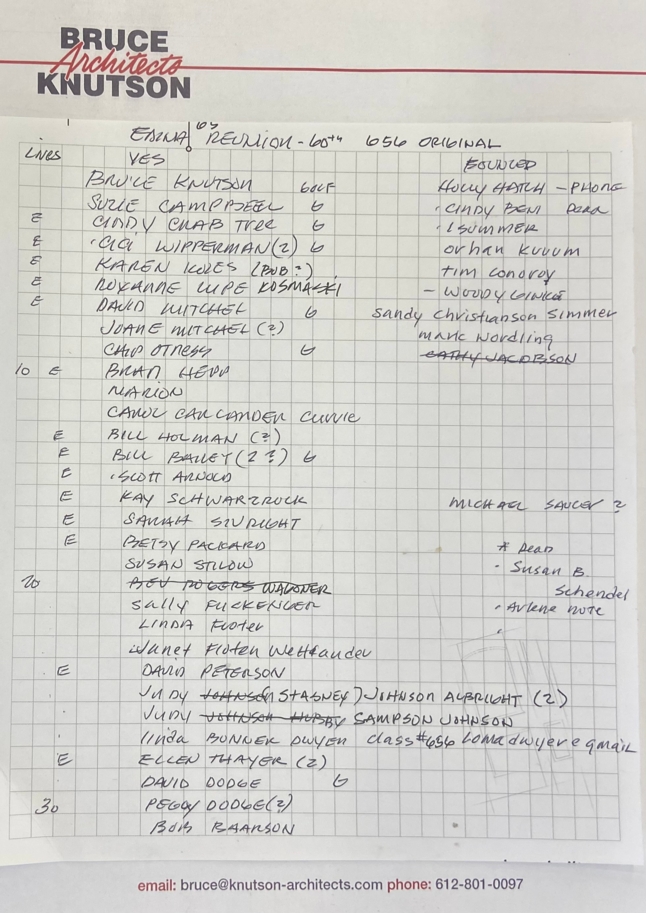 BRUCE
Architects
KNUTSON
EDINA 65 REUNION - 60TH 656 ORIGINAL
LIVES YES BOUNCED
BRUCE KNUTSON GOLF HOLLY HATCH - PHONE
SUZIE CAMPBELL G · CINDY BENI DEAD
E CINDY CRAB TREE G · SUMMER
E · CICI WIPPERMAN (2) G orhan KUUUM
E KAREN (BOB?) tim conoroy
E ROXANNE LUPE KOSMASKI - WOODY GINKEL
E DAVID MITCHEL G sandy christianson simmer
JOANE MITCHEL (?) mark Nordling
CHIP OTNESS G CATHY JACOBSON
10 E BRAD HEPP
MARION
CAROL CARLANDER CURRIE
E BILL HOLMAN (?)
E BILL BAILEY (2?) G
E · SCOTT ARNOLD
E KAY SCHWARZROCK MICHAEL SAUCER ?
E SARAH SIVRIGHT
E BETSY PACKARD * DEAD
SUSAN STILOW · Susan B.
20 BEV ROGERS WAGONER Schendel
Sally FLICKENGER · Arlene NOTE
LINDA Floten
Janet Floten Wettlander
E DAVID PETERSON
JUDY JOHNSON STAGNEY) JOHNSON ALBRIGHT (2)
JUDY JOHNSON HUBBY SAMPSON JOHNSON
linda BONNER DWYER class#656 lomadwyer@gmail
E ELLEN THAYER (2)
DAVID DODGE G
30 PEGGY DODGE (?)
BOB BAARSON
email: bruce@knutson-architects.com phone: 612-801-0097